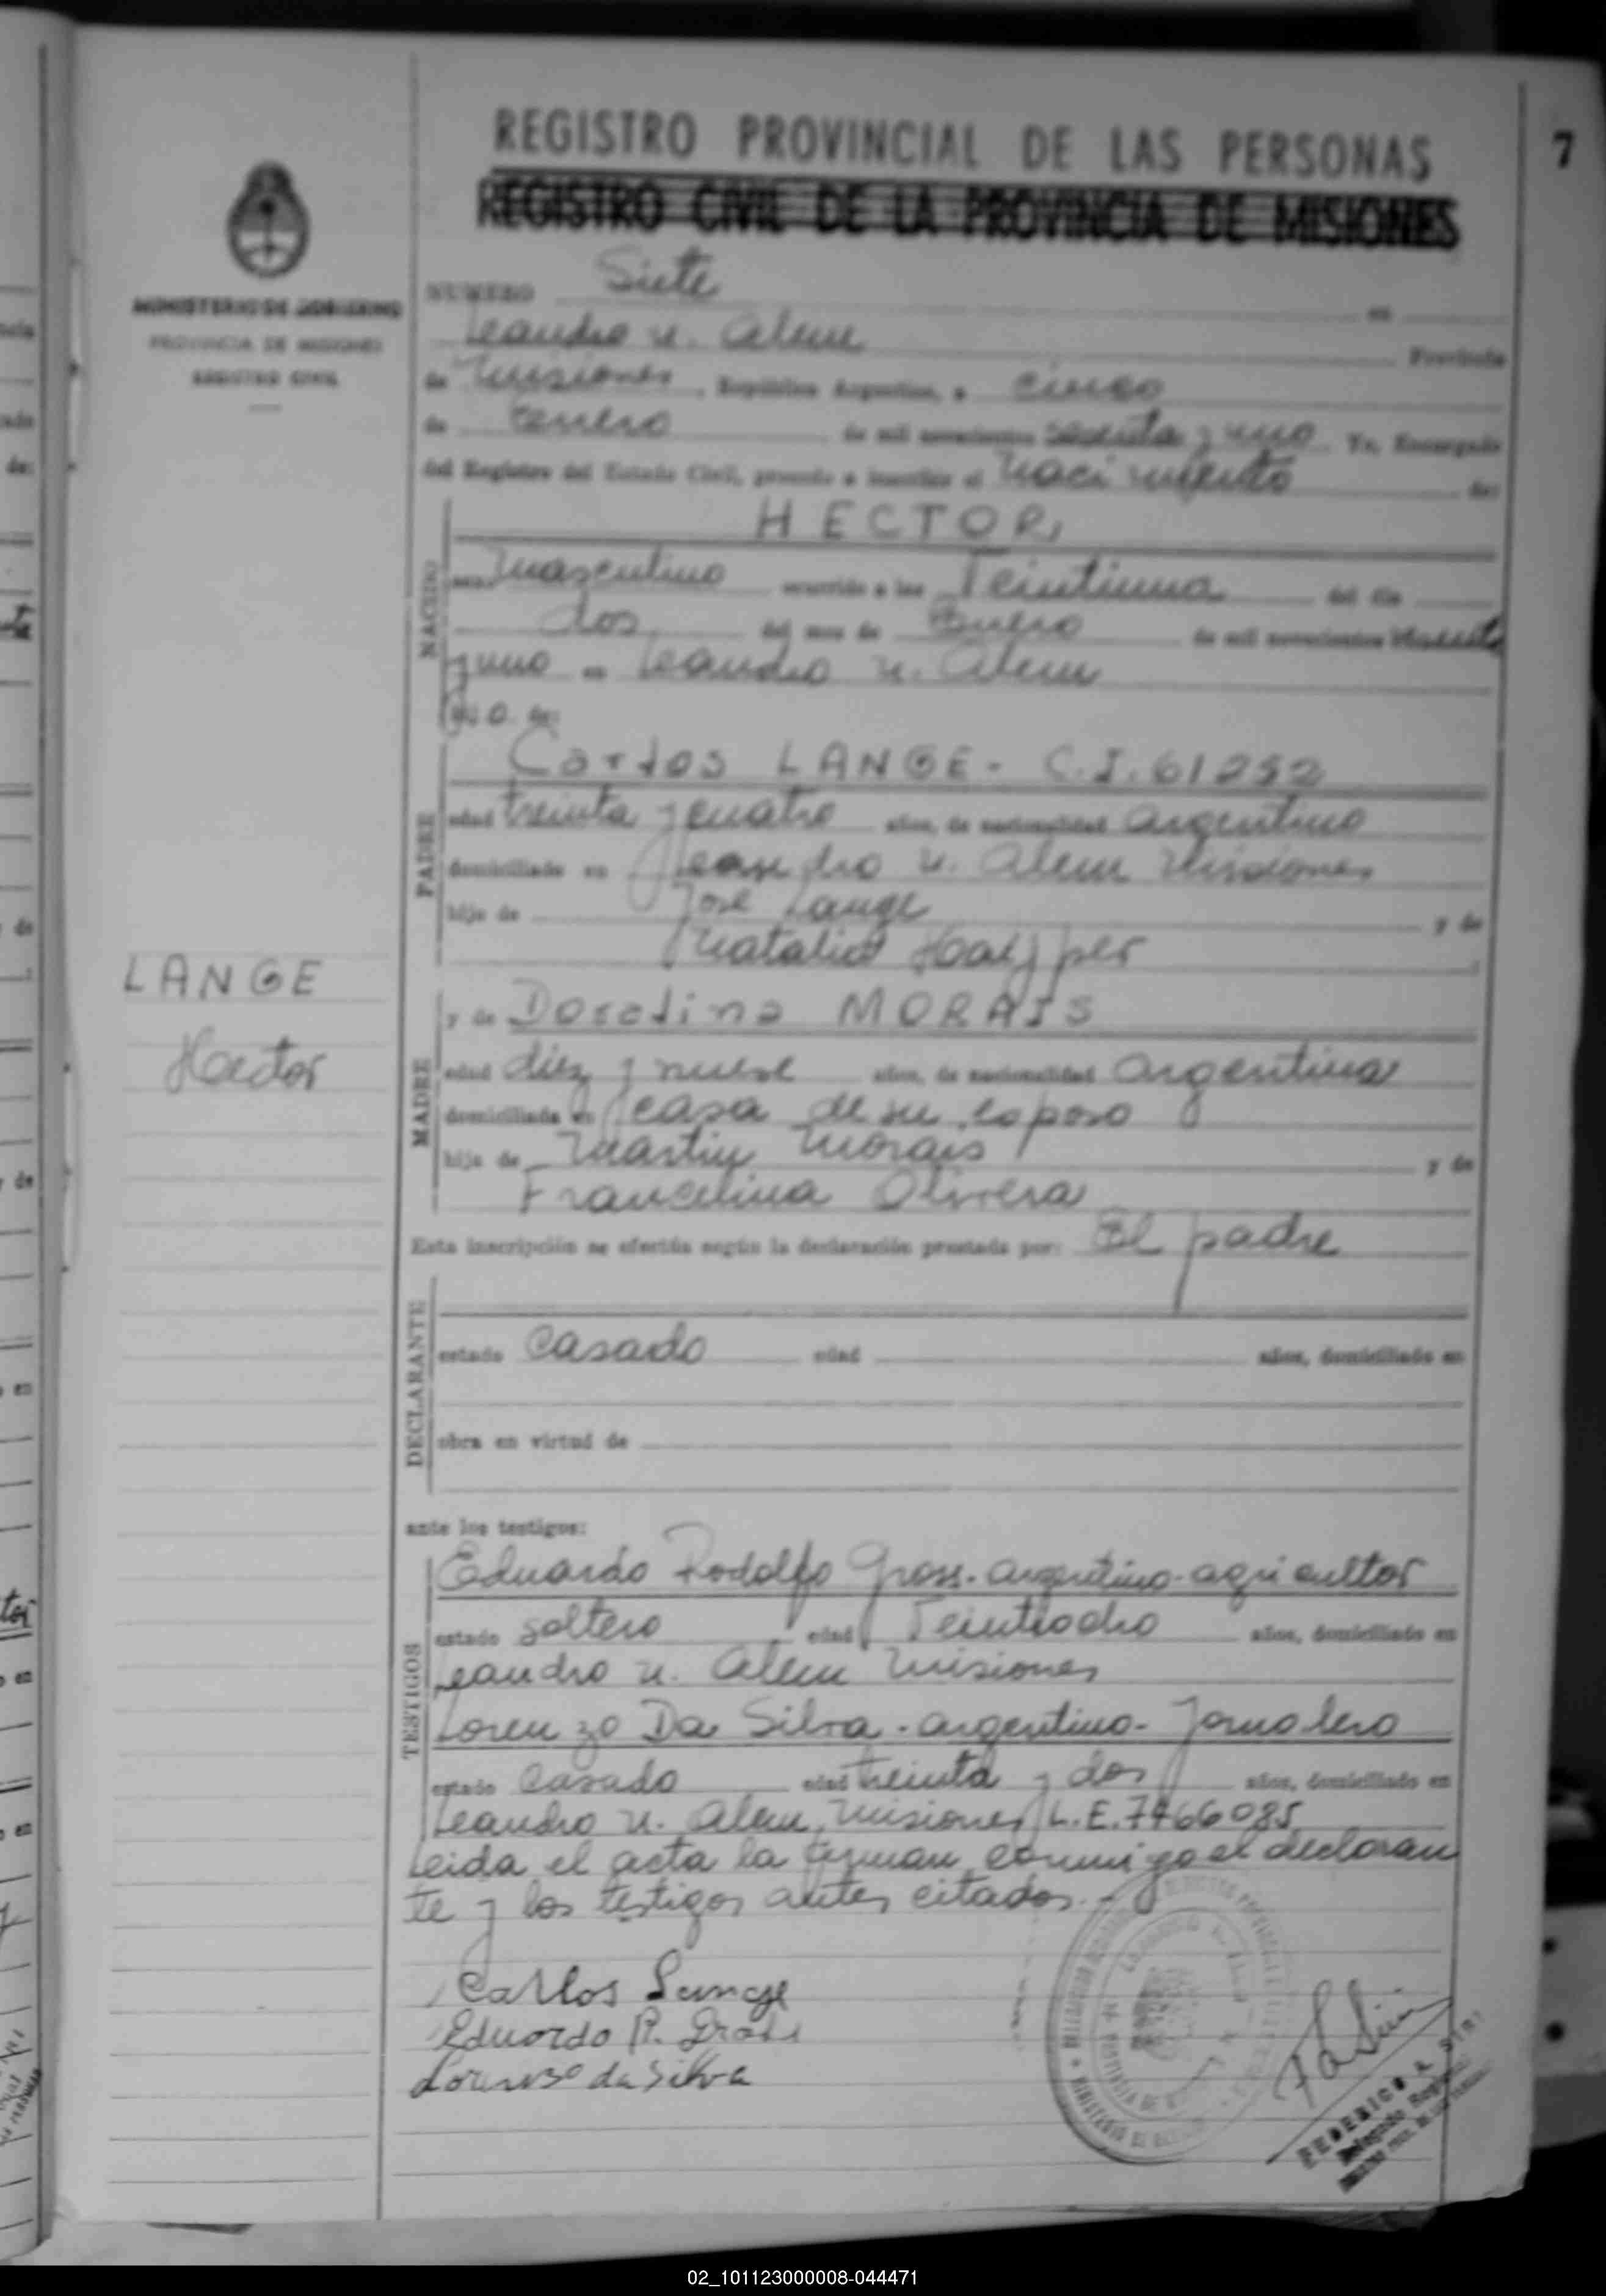 7
REGISTRO PROVINCIAL DE LAS PERSONAS
REGISTRO CIVIL DE LA PROVINCIA DE MISIONES
MINISTERIO DE GOBIERNO
PROVINCIA DE MISIONES
REGISTRO CIVIL
NUMERO Siete en
Leandro N. Alem Provincia
de Misiones, República Argentina, a cinco
de Enero de mil novecientos sesenta y uno Yo, Encargado
del Registro del Estado Civil, procedo a inscribir el Nacimiento de:
NACIDO
HECTOR,
sexo Masculino ocurrido a las Veintiuna del día
dos del mes de Enero de mil novecientos sesenta
y uno en Leandro N. Alem
hijo de:
PADRE
Carlos LANGE - C.I. 61252
edad treinta y cuatro años, de nacionalidad argentino
domiciliado en Leandro N. Alem Misiones
hijo de José Lange y de
Natalia
LANGE
Hector
MADRE
y de Doralina MORAIS
edad diez y nueve años, de nacionalidad argentina
domiciliada en casa de su esposo
hija de Martin Morais y de
Francelina Olivera
Esta inscripción se efectúa según la declaración prestada por: El padre
DECLARANTE
estado Casado edad años, domiciliado en
obra en virtud de
ante los testigos:
TESTIGOS
Eduardo Rodolfo Gross - argentino - agricultor
estado soltero edad Veintiocho años, domiciliado en
Leandro N. Alem Misiones
Lorenzo Da Silva - argentino - Jornalero
estado Casado edad treinta y dos años, domiciliado en
Leandro N. Alem, Misiones L.E. 7466085
Leida el acta la firman conmigo el declaran
te y los testigos antes citados.-
Carlos Lange
Eduardo R. Gross
Lorenso da Silva
FEDERICO A.
Delegado
02_101123000008-044471